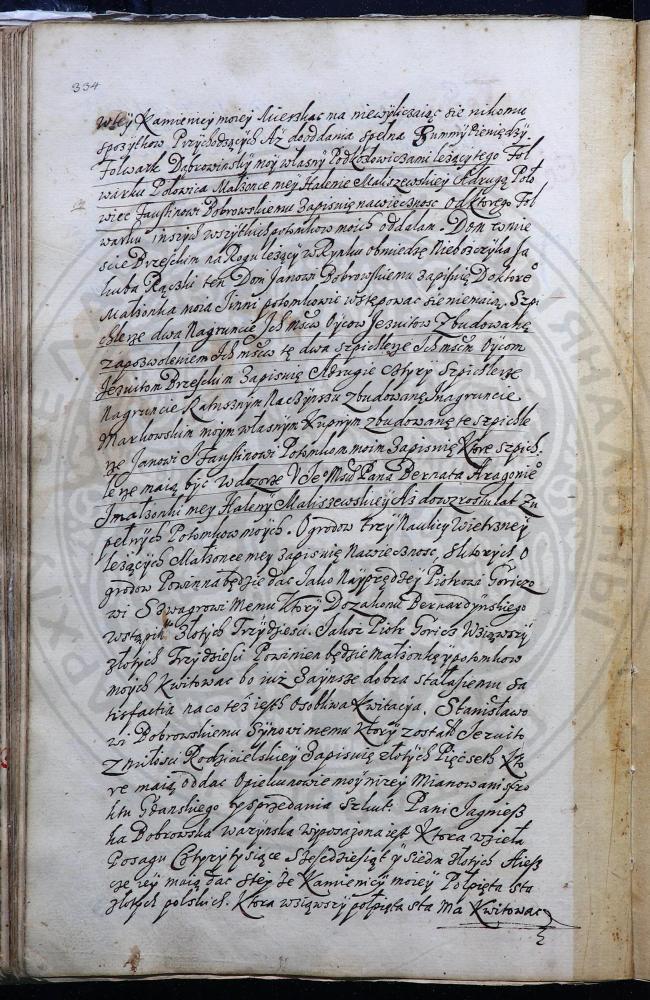 334
w tey Kamienicy moiey Mieszkac na niewyliczaiąc sie nikomu
spozytkow Przychodzących Aż do oddania spełna Summy Pieniędzy.
Folwark Dąbrowinsky moy własny Pod Kozłowiczami leżący tego Fol
warku Połowica Małżonce mey Halenie Maliszewskiey A drugą Poło
wicę Faustinowi Bobrowskiemu Zapisuię na wiecznosc Od ktorego Fol
warku inszych wszytkich potomkow moich oddalam. Dom w miе
scie Brzeskim na Rogu leżący w Rynku obmiedzę Nieboszczyka Ja
kuba Rączki ten Dom Janowi Bobrowskiemu Zapisuię Do ktore°
Małżonka moia I inni potomkowie wstępowac się niemaią. Szpi
chlerze dwa Na gruncie Ich msciw Oycow Jezuitow Zbudowane
za pozwoleniem Ich msciw te dwa szpichlerze Ich mscm Oycom
Jezuitom Brzeskim Zapisuię A drugie cztyry Szpichlerze
Na gruncie Ratusznym Zbudowane Ina gruncie
Markowskim moym własnym Kupnym zbudowane te szpichle
rze Janowi I Faustinowi Potomkom moim Zapisuię Ktore szpich
lerze maią byc w dozorze V Je° Msci Pana Bernata Aragonie°
I małżonki mey Haleny Maliszewskiey Aż do wzrostu lat zu
pełnych Potomkow moych. Ogrodow trzy Na ulicy Wietrzney
leżących Małżonce mey Zapisuię Na wiecznosc, s ktorych O
grodow Powinna będzie dac Jako Nayprędzey Piotrowi Goriczo
wi Szwagrowi Memu Ktory Do Zakonu Bernardynskiego
wstąpił Złotych Trzydziesci. Jakoz Piotr Goricz Wziąwszy
złotych Trzydziesci Powinien będzie małżonkę y potomkow
moych Kwitowac bo iuż Za ynsze dobra stała sie mu sa
tisfactia na co też iest Osobliwa Kwitacya. Stanisławo
wi Bobrowskiemu Synowi memu Ktory został Jezuito
Z miłosci Rodzicielskiey Zapisuię złotych Pięcset Kto
re maią oddac Opiekunowie moy nizey Mianowani s fro
khtu Gdanskiego y sprzedania szkut. Pani Jagniesz
ka Bobrowska Warzynska wyposażona iest Ktora wzieła
Posagu Cztyry tysiące Szescdziesiąt y siedm złotych Niesz
cze iey maią dac s tey że Kamienicy moiey Połpięta sta
złotych polskich. Ktora wziąwszy połpięta sta Ma Kwitowac